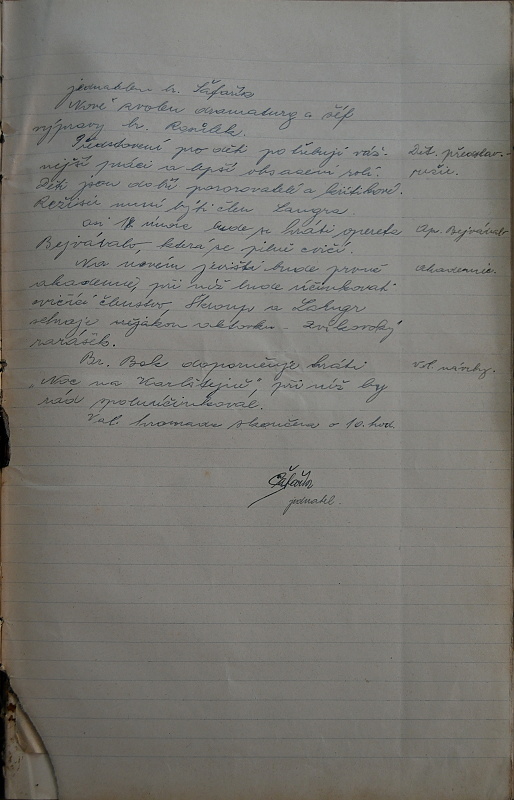 jednatelem br. Šafařík
Nově zvolen dramaturg a šéf
výpravy br.
Představení pro děti potřebují váž-
nější práci a lepší obsazení rolí.
Děti jsou dobří pozorovatelé a kritikové.
Režisér musí býti člen Langra.
Dět. představ.
režie.
asi 18 února bude se hráti opereta
Bejvávalo, která se pilně cvičí.
Op. Bejvávalo
Na novém jevišti bude první
akademie, při níž bude účinkovati
cvičící členstvo, Skroup a Langr
sehraje nějakou aktovku - Zvíkovský
rarášek.
Akademie.
Br. Bok doporučuje hráti
„Noc na Karlštejně", při níž by
rád spoluúčinkoval.
Vol. návrhy.
Val. hromada skončena o 10. hod.
Šafařík
jednatel.